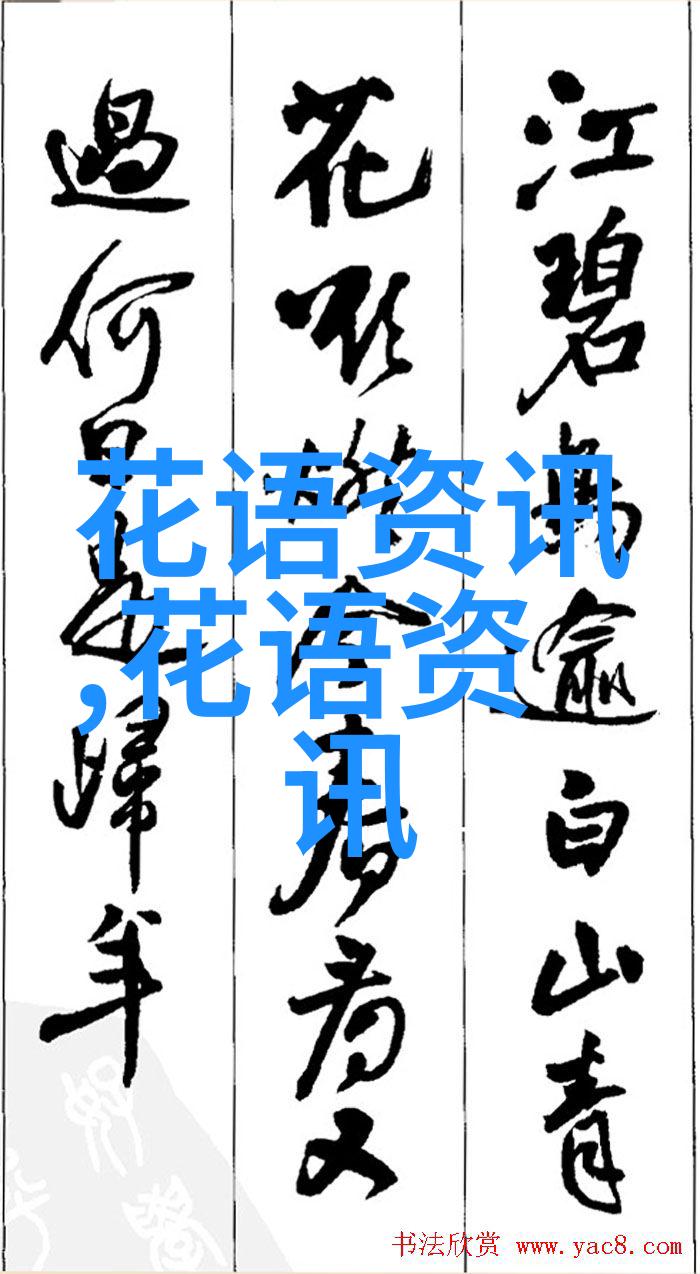 江碧鳥逾白山青
花欲燃今春看又
過何日是歸年
花语资讯
,花语资
讯
书法欣赏 www.yac8.com